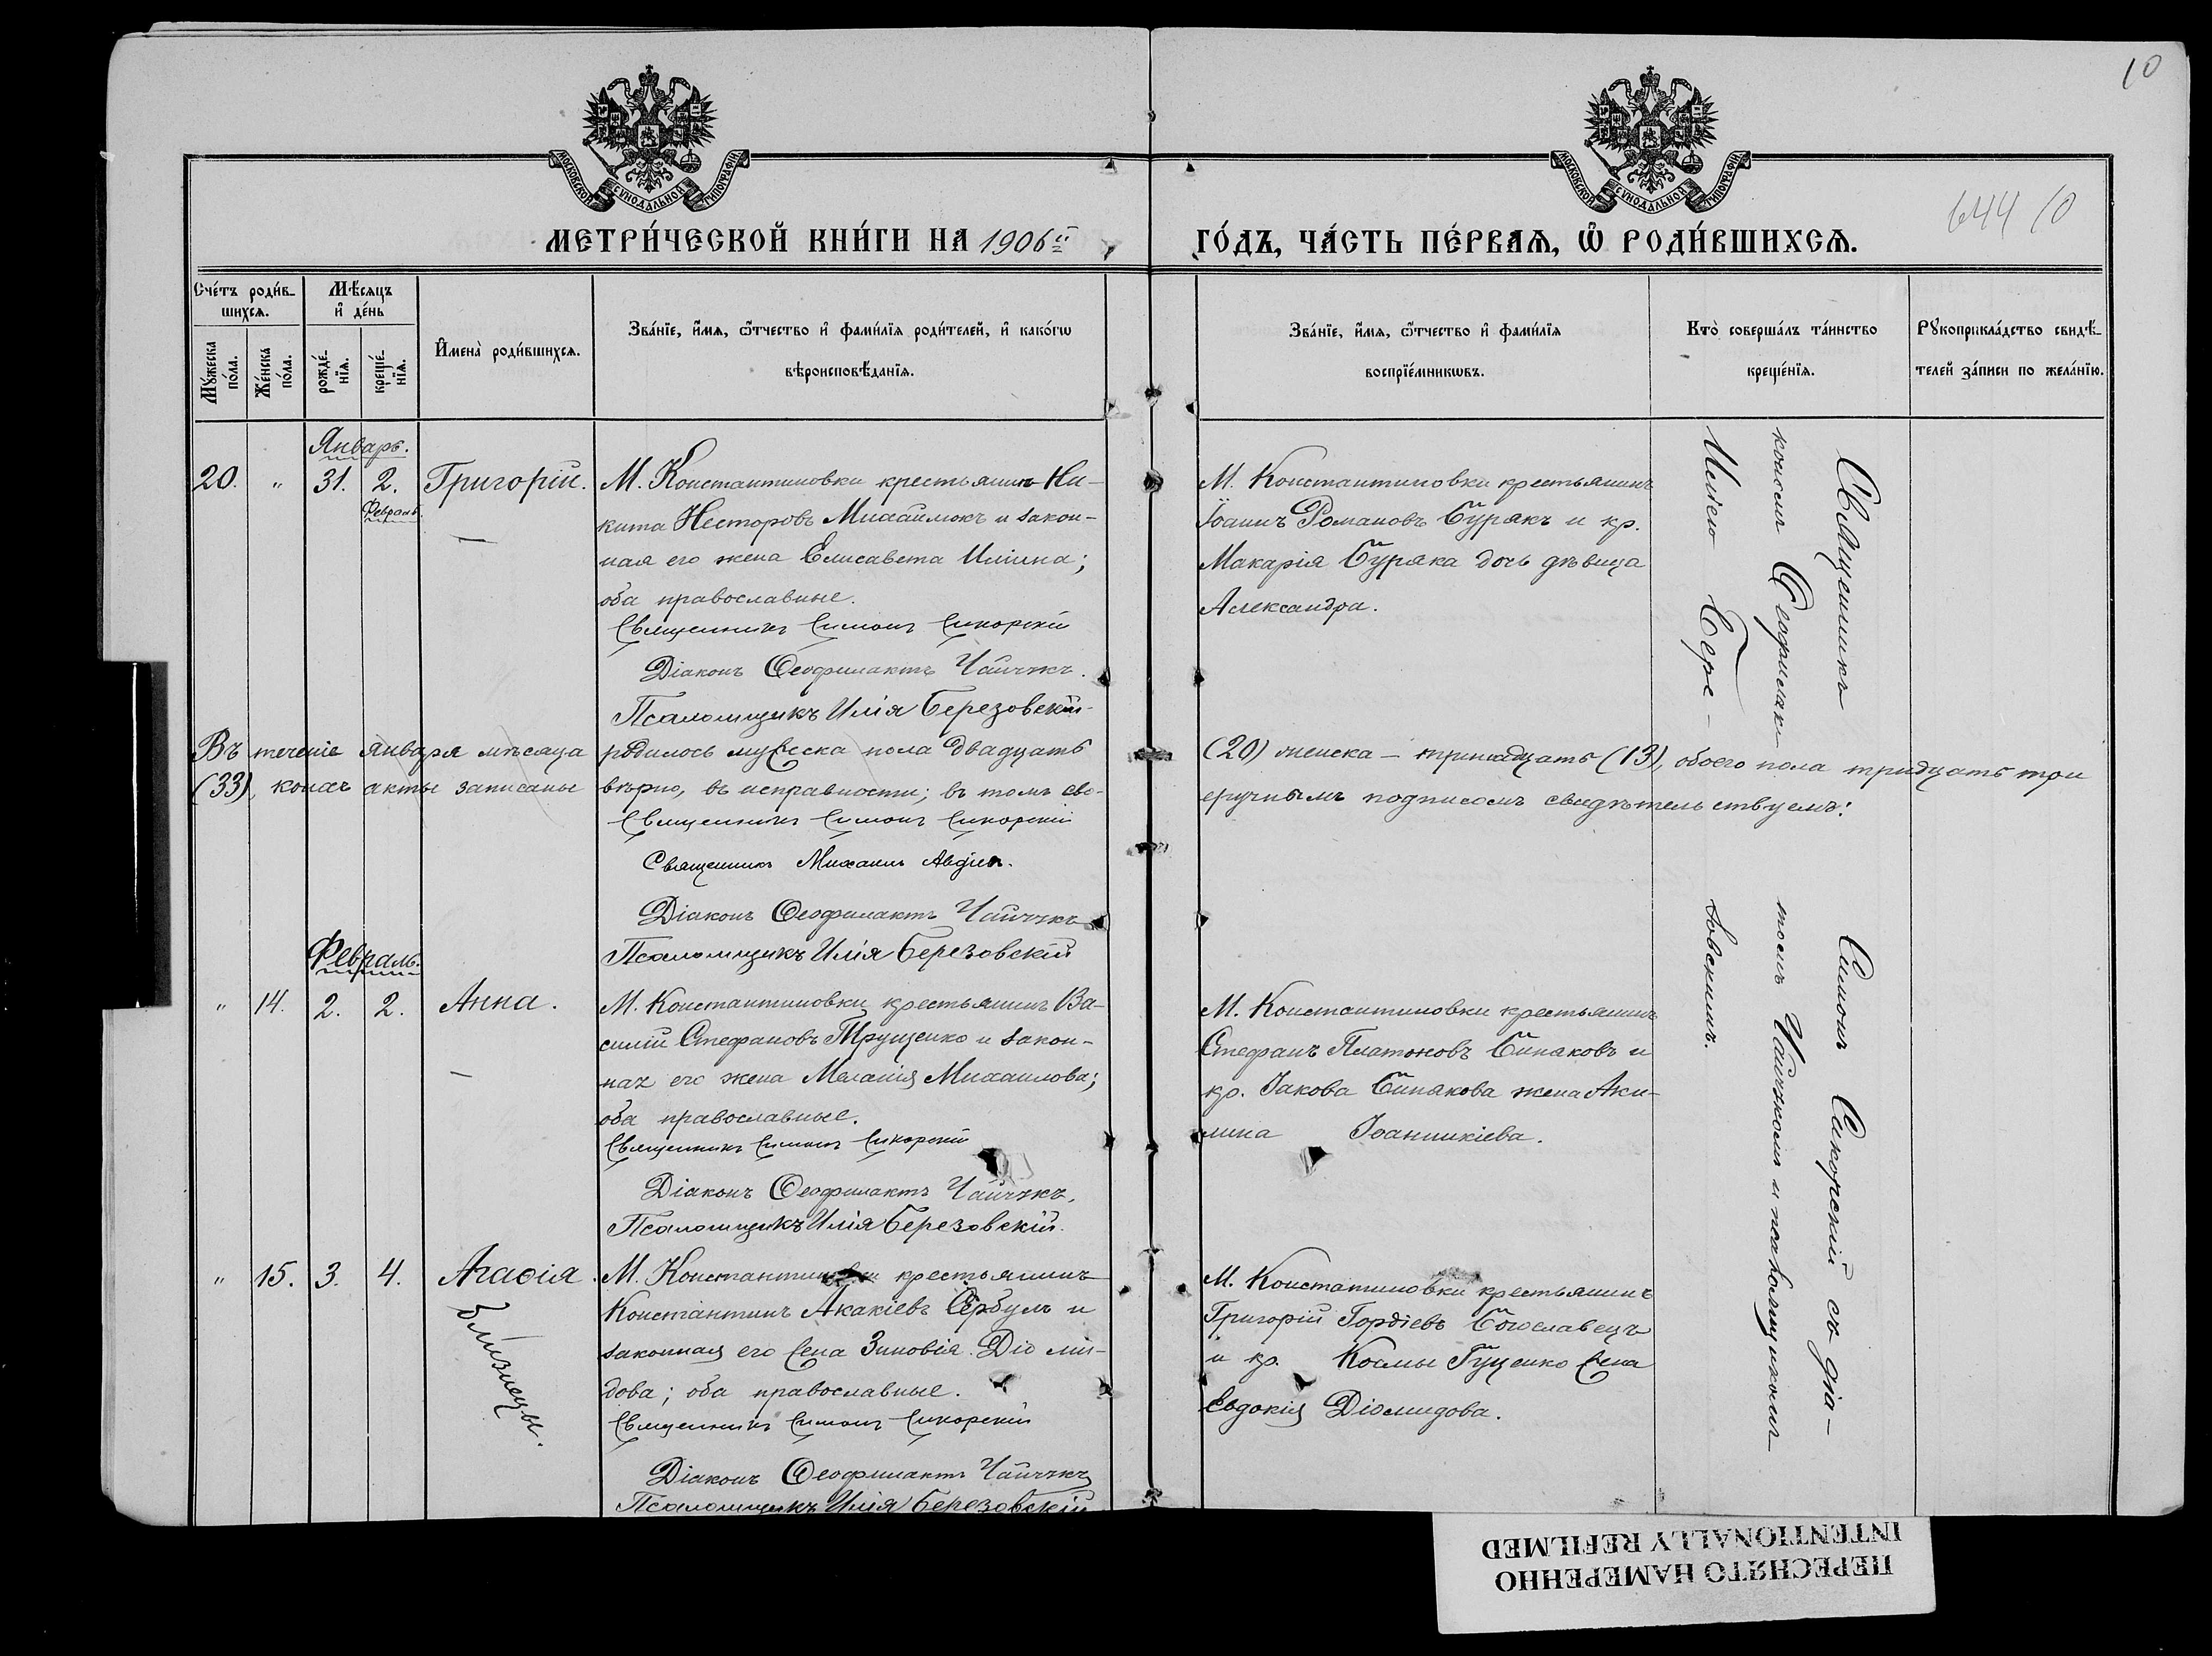 10
МОСКОВСКОЙ СѴНОДАЛЬНОЙ ТИПОГРАФІИ
МОСКОВСКОЙ СѴНОДАЛЬНОЙ ТИПОГРАФІИ
644 10
МЕТРИ́ЧЕСКОЙ КНИ́ГИ НА 1906й
ГО́ДЪ, ЧА́СТЬ ПЕ́РВАѦ, Ѽ РОДИ́ВШИХСѦ.
Сче́тъ роди́в-
шихсѧ.
Мѣ́сѧцъ
и҆ де́нь
Мꙋ́жеска по́ла.
Же́нска по́ла.
рожде́-
нїѧ.
креще́-
нїѧ.
И҆мена̀ роди́вшихсѧ.
Зва́нїе, и҆́мѧ, ѻ҆́тчество и҆ фами́лїѧ роди́телей, и҆ како́гѡ
вѣроисповѣ́данїѧ.
Зва́нїе, и҆́мѧ, ѻ҆́тчество и҆ фами́лїѧ
воспрїе́мникѡвъ.
Кто̀ соверша́лъ та́инство
креще́нїѧ.
Рꙋкоприкла́дство свидѣ́-
телей за́писи по жела́нїю.
Январь.
20. " 31. 2. Григорій.
Февраль
М. Константиновки крестьянинъ Ни-
кита Несторовъ Михайлюкъ и закон-
ная его жена Елисавета Иліина;
оба православные.
Священникъ Симонъ Сикорскій
Діаконъ Ѳеофилактъ Чайчукъ.
Псаломщикъ Илія Березовскій
М. Константиновки крестьянинъ
Іоаннъ Романовъ Бурякъ и кр.
Макарія Буряка дочь дѣвица
Александра.
Священникъ Симонъ Сикорскій съ діа-
кономъ Ѳеофилактомъ Чайчукомъ и псаломщикомъ
Иліею Березовскимъ.
Въ теченіе января мѣсяца родилось мужеска пола двадцать (20) женска – тринадцать (13), обоего пола тридцать три
(33), коихъ акты записаны вѣрно, въ исправности; въ томъ сво-еручнымъ подписомъ свидѣтельствуемъ:
Священникъ Симонъ Сикорскій
Священникъ Михаилъ
Діаконъ Ѳеофилактъ Чайчукъ
Псаломщикъ Илія Березовскій
Февраль.
" 14. 2. 2. Анна.
М. Константиновки крестьянинъ Ва-
силій Стефановъ Трущенко и закон-
ная его жена Меланія Михаилова;
оба православные.
Священникъ Симонъ Сикорскій
Діаконъ Ѳеофилактъ Чайчукъ.
Псаломщикъ Илія Березовскій.
М. Константиновки крестьянинъ
Стефанъ Платоновъ и
кр. Іакова жена Аки-
лина Іоанникіева.
" 15. 3. 4. Агаѳія.
Близнецы.
М. Константиновки крестьянинъ
Константинъ Акакіевъ Сербулъ и
законная его жена Зиновія Діоми-
дова; оба православные.
Священникъ Симонъ Сикорскій
Діаконъ Ѳеофилактъ Чайчукъ
Псаломщикъ Илія Березовскій
М. Констатиновки крестьянинъ
Григорій Гордіевъ Богославецъ
и кр. Космы Гуценко жена
Евдокія Діомидова.
ПЕРЕСНЯТО НАМЕРЕННО
INTENTIONALLY REFILMED